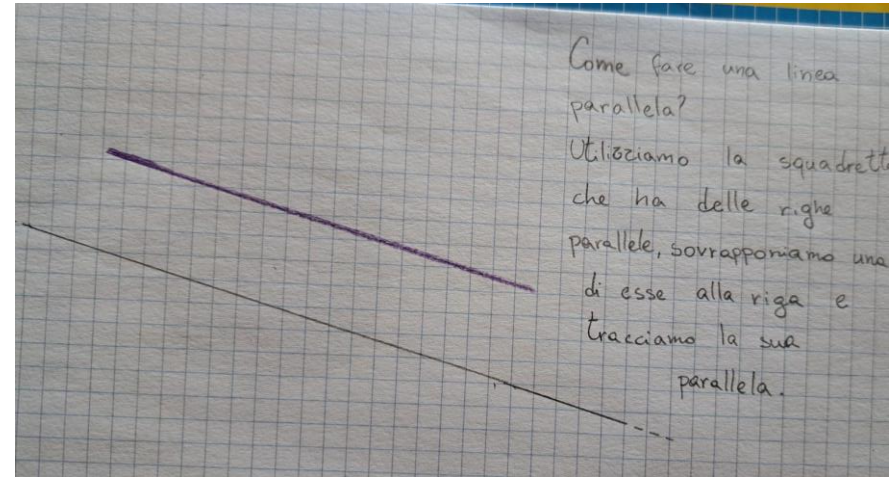 Come fare una linea
parallela?
Utilizziamo la squadretta
che ha delle righe
parallele, sovrapponiamo una
di esse alla riga e
tracciamo la sua
parallela.